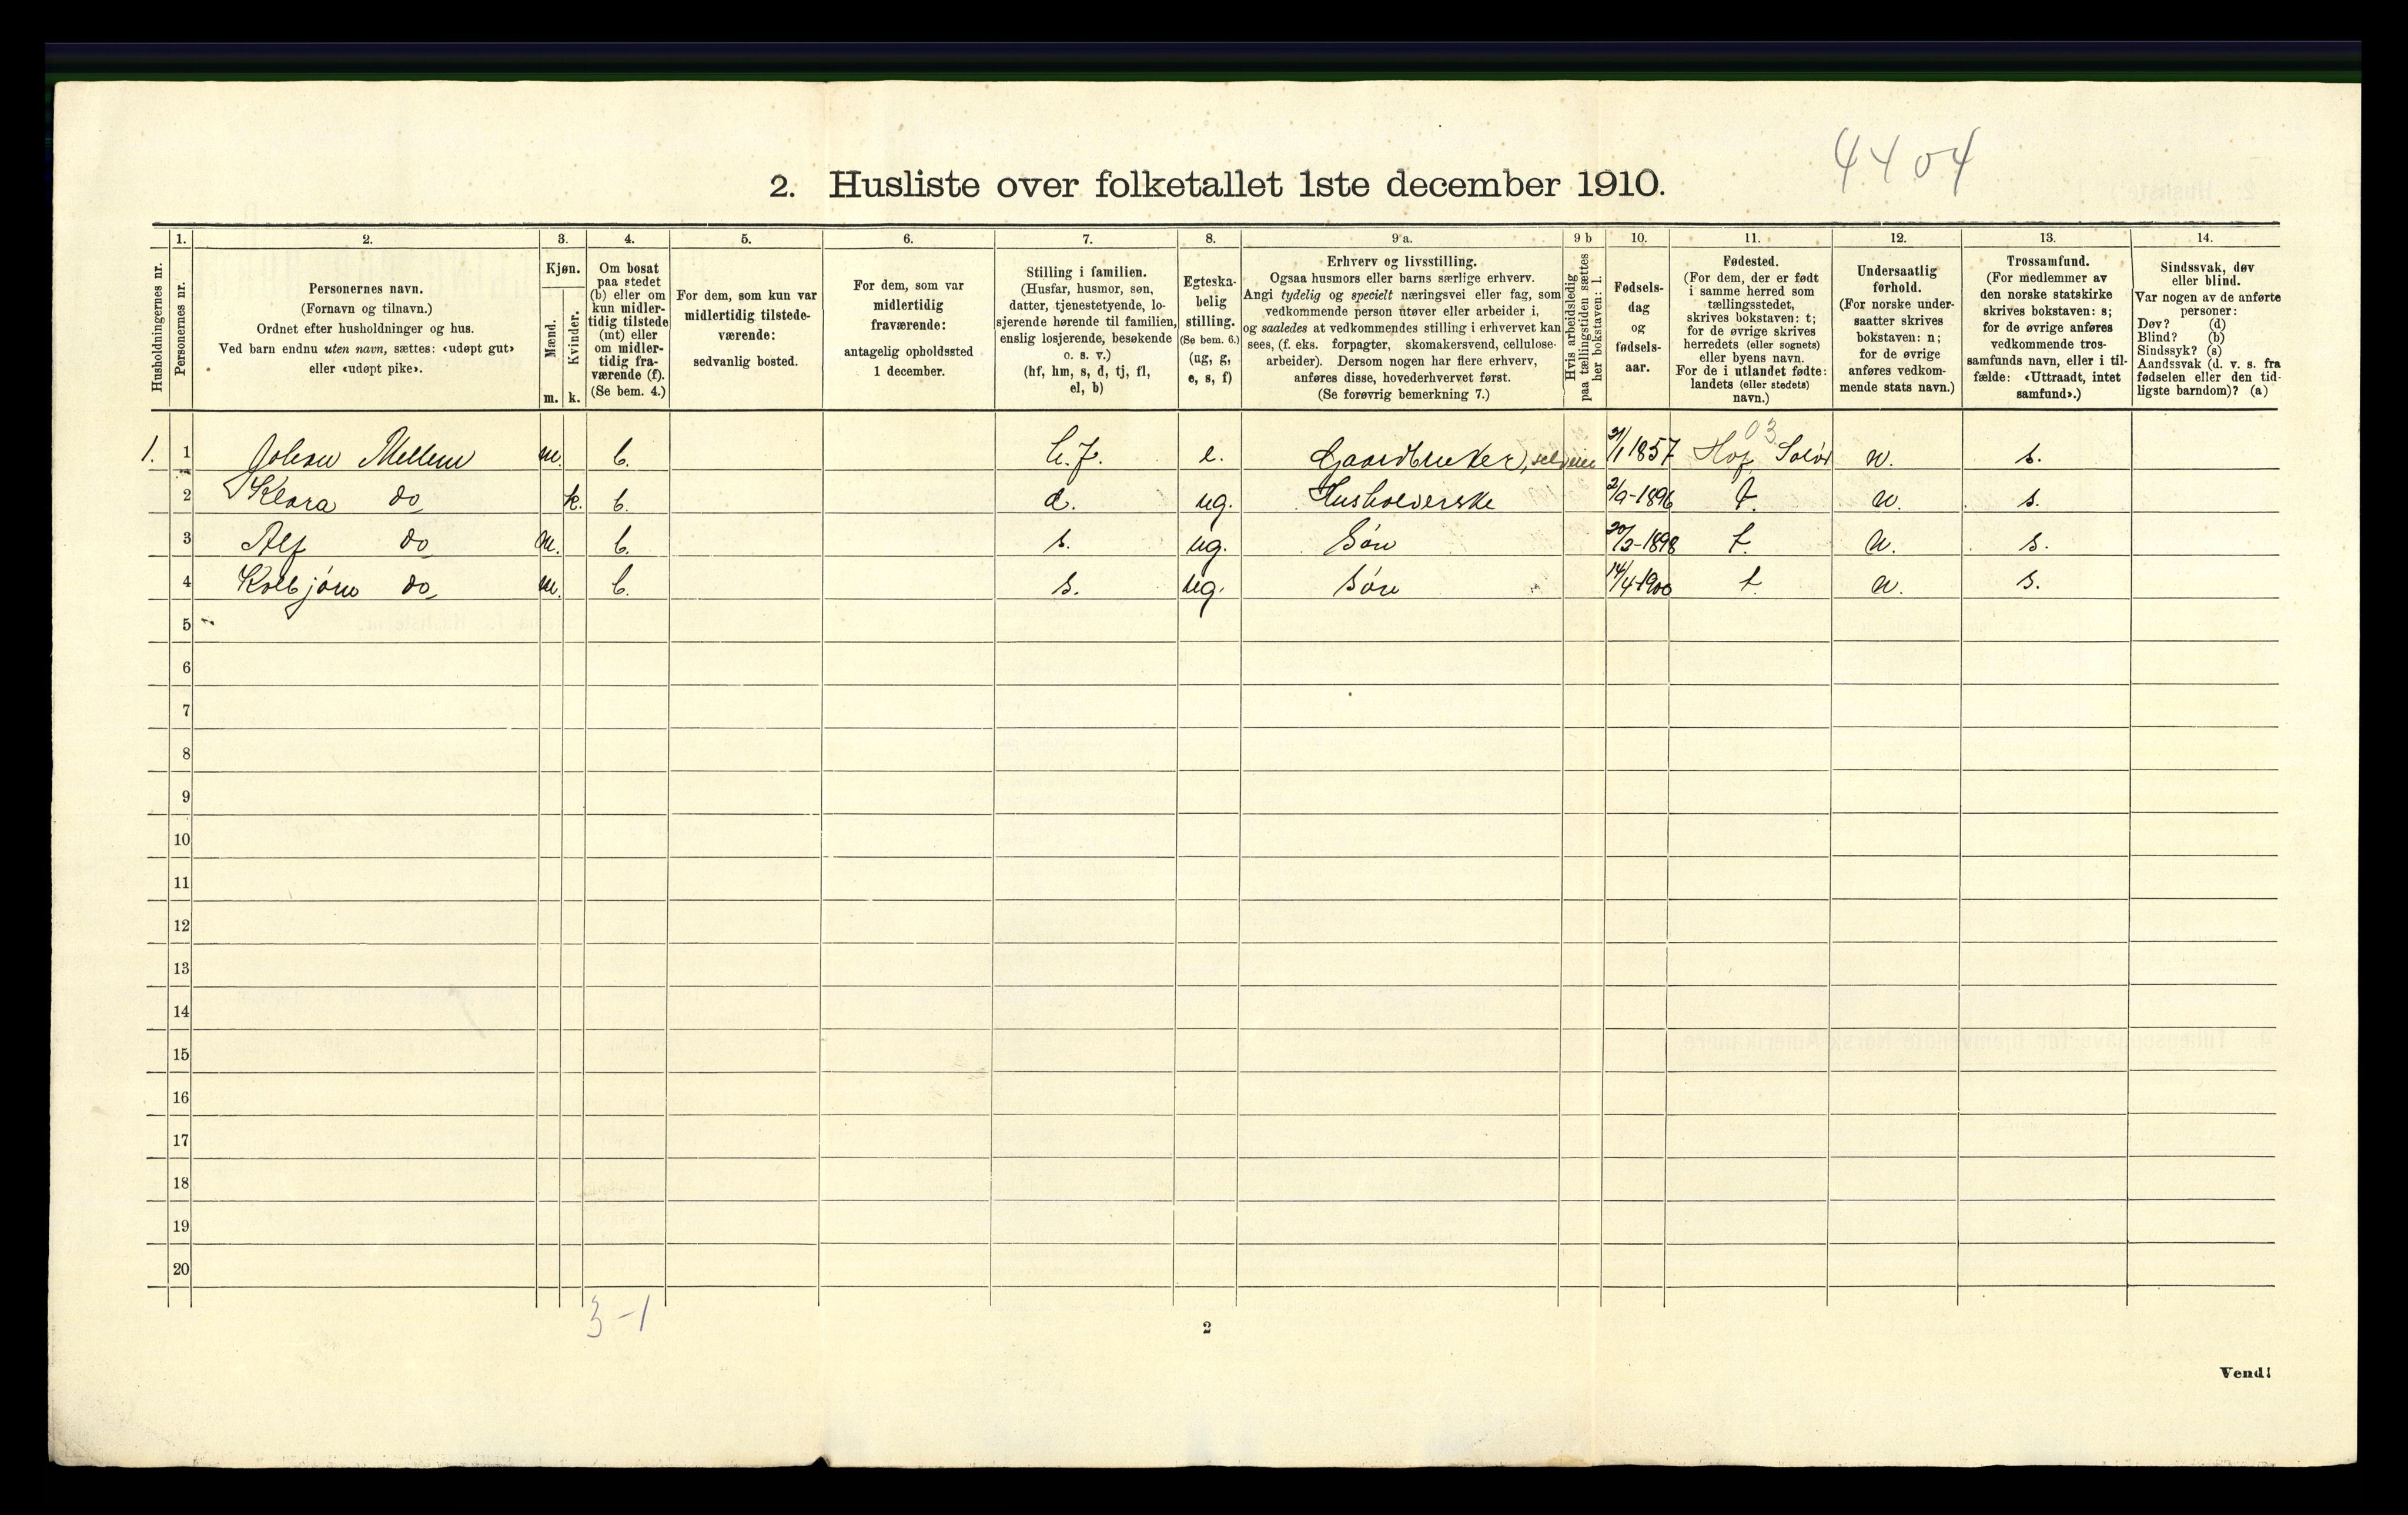 4404
2. Husliste over folketallet 1ste december 1910.
Husholdningernes nr.
1.
Personernes nr.
2.
Personernes navn.
(Fornavn og tilnavn.)
Ordnet efter husholdninger og hus.
Ved barn endnu uten navn, sættes: «udøpt gut»
eller «udøpt pike».
3.
Kjøn.
Mænd.
Kvinder.
m. k.
4.
Om bosat
paa stedet
(b) eller om
kun midler-
tidig tilstede
(mt) eller
om midler-
tidig fra-
værende (f).
(Se bem. 4.)
5.
For dem, som kun var
midlertidig tilstede-
værende:
sedvanlig bosted.
6.
For dem, som var
midlertidig
fraværende:
antagelig opholdssted
1 december.
7.
Stilling i familien.
(Husfar, husmor, søn,
datter, tjenestetyende, lo-
sjerende hørende til familien,
enslig losjerende, besøkende
o. s. v.)
(hf, hm, s, d, tj, fl,
el, b)
8.
Egteska-
belig
stilling.
(Se bem. 6.)
(ug, g,
e, s, f)
9 a.
Erhverv og livsstilling.
Ogsaa husmors eller barns særlige erhverv.
Angi tydelig og specielt næringsvei eller fag, som
vedkommende person utøver eller arbeider i,
og saaledes at vedkommendes stilling i erhvervet kan
sees, (f. eks. forpagter, skomakersvend, cellulose-
arbeider). Dersom nogen har flere erhverv,
anføres disse, hovederhvervet først.
(Se forøvrig bemerkning 7.)
9 b
Hvis arbeidsledig
paa tællingstiden sættes
her bokstaven: l.
10.
Fødsels-
dag
og
fødsels-
aar.
11.
Fødested.
(For dem, der er født
i samme herred som
tællingsstedet,
skrives bokstaven: t;
for de øvrige skrives
herredets (eller sognets)
eller byens navn.
For de i utlandet fødte:
landets (eller stedets)
navn.)
12.
Undersaatlig
forhold.
(For norske under-
saatter skrives
bokstaven: n;
for de øvrige
anføres vedkom-
mende stats navn.)
13.
Trossamfund.
(For medlemmer av
den norske statskirke
skrives bokstaven: s;
for de øvrige anføres
vedkommende tros-
samfunds navn, eller i til-
fælde: «Uttraadt, intet
samfund».)
14.
Sindssvak, døv
eller blind.
Var nogen av de anførte
personer:
Døv? (d)
Blind? (b)
Sindssyk? (s)
Aandssvak (d. v. s. fra
fødselen eller den tid-
ligste barndom)? (a)
03
1. 1 Johan Mellem m. b. h.f. e. Gaardbruker, selveier 1857 Hof Solør n. s.
2 Klara do k. b. d. ug. Husholderske 2/9-1896 t. n. s.
3 Alf do m. b. s. ug. Søn 1898 t. n. s.
4 Kolbjørn do m. b. s. ug. Søn 14/4-1900 t. n. s.
5
6
7
8
9
10
11
12
13
14
15
16
17
18
19
20
3-1
2
Vend!